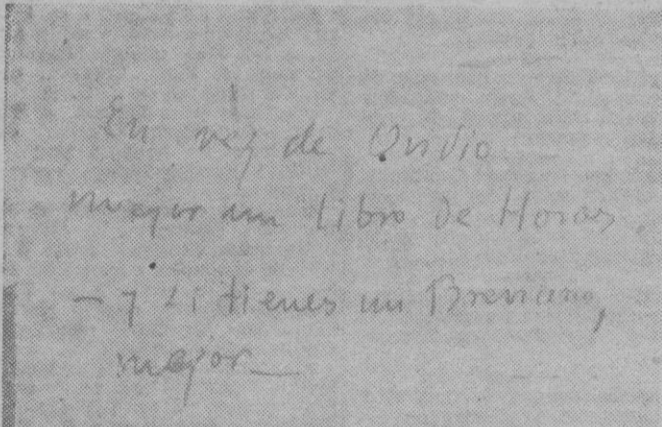 En vez de Ovidio
mejor un libro de Horas
- y si tienes un Breviario,
mejor—